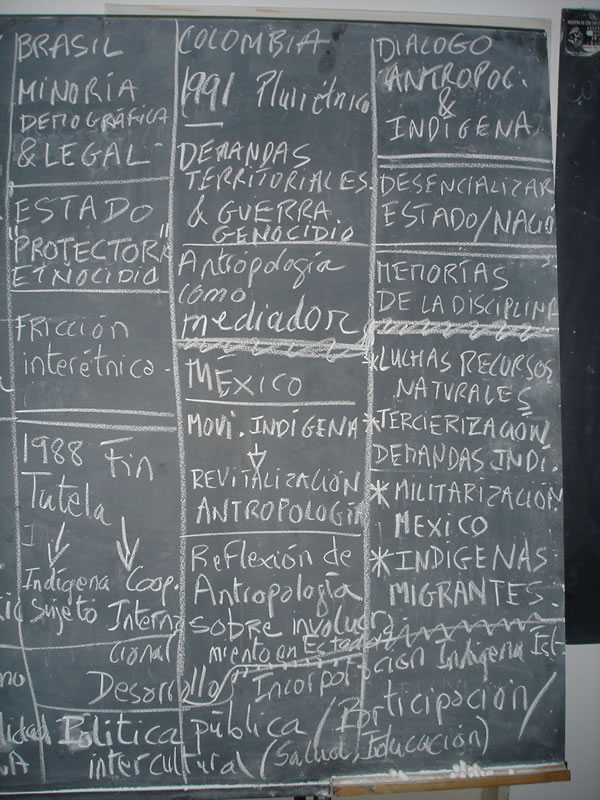 BRASIL
MINORÍA
DEMOGRÁFICA
& LEGAL
ESTADO
"PROTECTOR"
ETNOCIDIO
FRICCIÓN
interétnica
1988 Fin
Tutela
Indígena Coop.
Sujeto Interna
cional
Desarrollo
COLOMBIA
1991 Pluriétnico
DEMANDAS
TERRITORIALES
& GUERRA
GENOCIDIO
Antropología
como
mediador
MÉXICO
MOVI. INDÍGENA
REVITALIZACIÓN
ANTROPOLOGIA
Reflexión de
Antropología
sobre involucra
miento en Estado
DIALOGO
ANTROPOC.
&
INDÍGENA
DESENCIALIZAR
ESTADO/NACIO
MEMORÍAS
DE LA DISCIPLINA
*LUCHAS RECURSOS
NATURALES
*TERCIERIZACIÓN
DEMANDAS INDI.
*MILITARIZACIÓN
MEXICO
*INDIGENAS
MIGRANTES.
Incorporación Indígena Est-
Política pública / Participación /
intercultural (Salud, Educación)